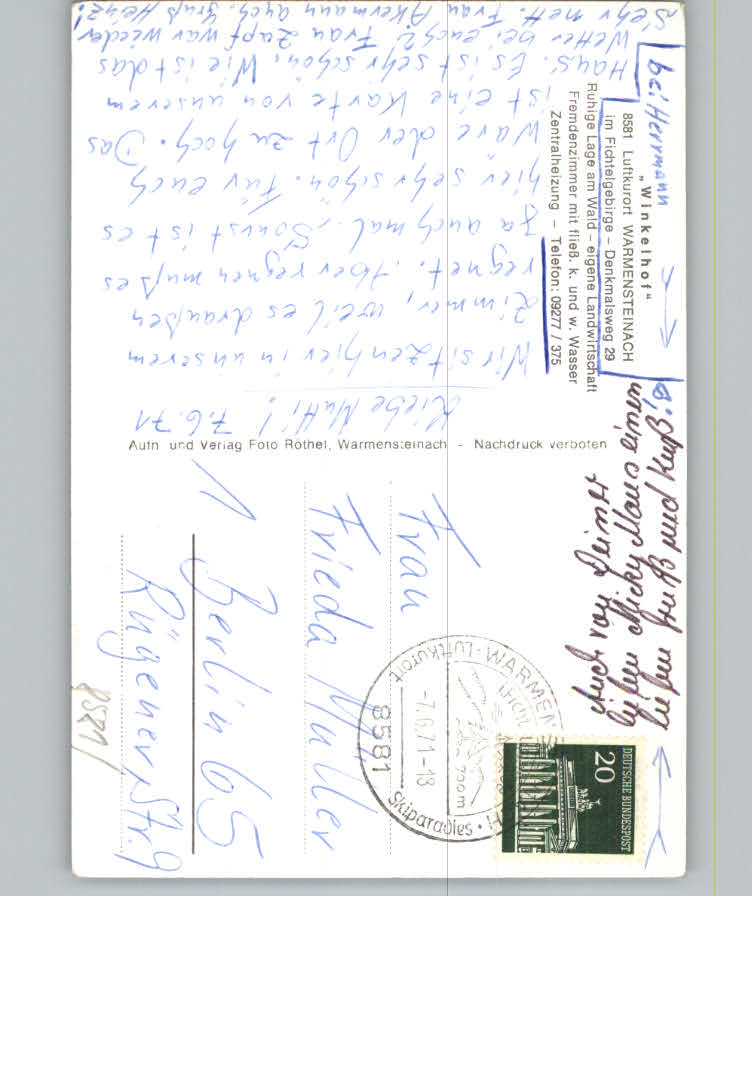 „Winkelhof“
8581 Luftkurort WARMENSTEINACH
im Fichtelgebirge – Denkmalsweg 29
Ruhige Lage am Wald – eigene Landwirtschaft
Fremdenzimmer mit fließ. k. und w. Wasser
Zentralheizung – Telefon: 09277 / 375
bei Herrmann
Liebe Mutti! 7.6.71
Wir sitzen hier in unserem
Zimmer, weil es draußen
regnet. Aber regnen muß es
ja auch mal. Sonst ist es
hier sehr schön. Für euch
wäre der Ort zu hoch. Das
ist eine Karte von unserem
Haus. Es ist sehr schön. Wie ist das
Wetter bei euch? Frau Zapf war wieder
sehr nett. Frau Akermann auch. Gruß Heinz!
Aufn. und Verlag Foto Röthel, Warmensteinach – Nachdruck verboten
Auch von Deiner
lieben Micky Maus einen
lieben Gruß und Kuß
Frau
Frieda Müller
1 Berlin 65
Rügener Str. 9
8581
DEUTSCHE BUNDESPOST
20
Luftkurort · WARMEN
-7.6.71-18
8581
Skiparadies · H